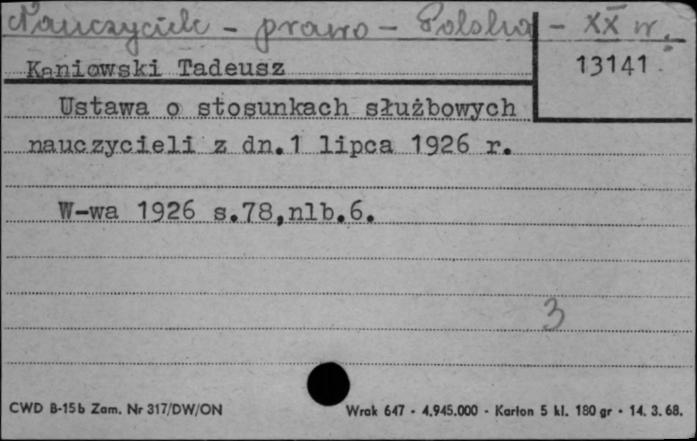 Nauczyciele - prawo - Polska - XX w.
Kaniowski Tadeusz
13141
Ustawa o stosunkach służbowych
nauczycieli z dn.1 lipca 1926 r.
W-wa 1926 s.78,nlb.6.
3
CWD B-15b Zam. Nr 317/DW/ON
Wrak 647 - 4.945.000 - Karton 5 kl. 180 gr - 14. 3. 68.